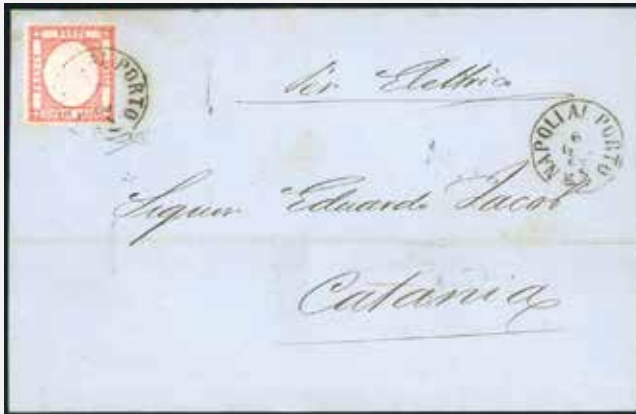 PORTO
Per Elettrico
NAPOLI AL PORTO
6
Signor Eduardo Jacob
Catania